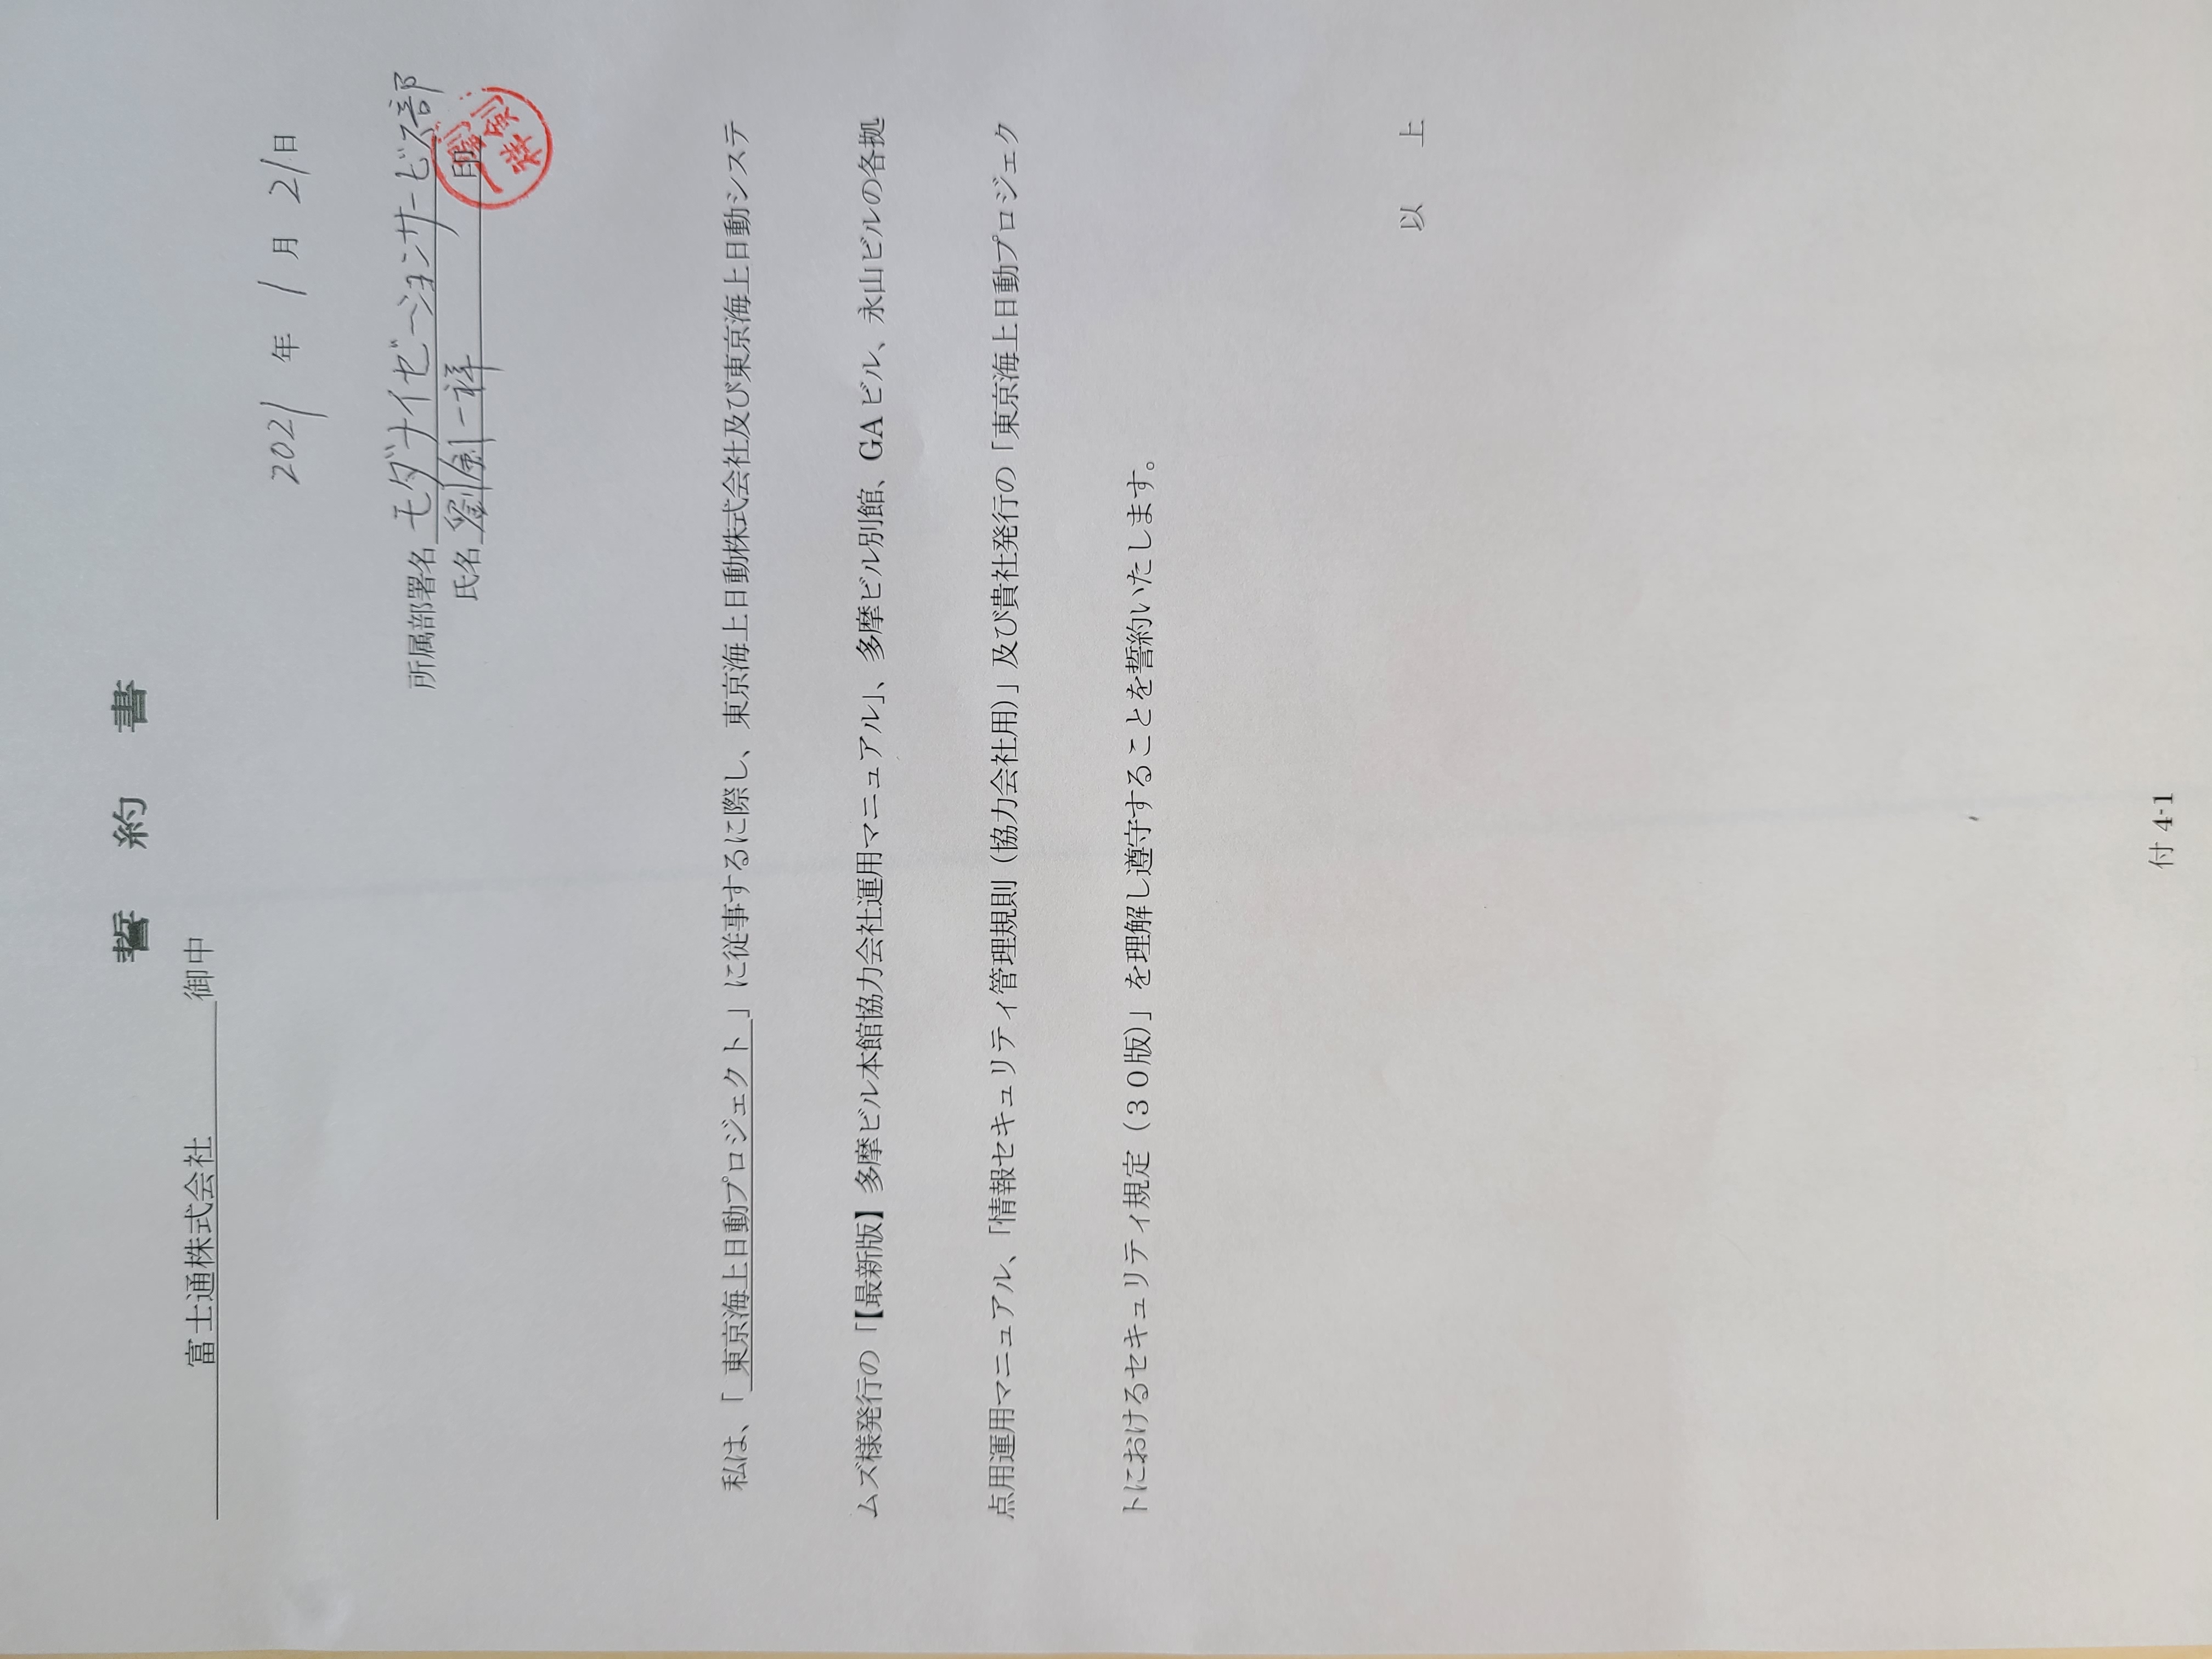 誓約書
富士通株式会社 御中
2021 年 1 月 21日
所属部署名 モダナイゼーションサービス部
氏名 劉剣一祥 印
劉剣一祥
私は、「 東京海上日動プロジェクト 」に従事するに際し、東京海上日動株式会社及び東京海上日動システ
ムズ様発行の「【最新版】多摩ビル本館協力会社運用マニュアル」、多摩ビル別館、GAビル、永山ビルの各拠
点用運用マニュアル、「情報セキュリティ管理規則（協力会社用）」及び貴社発行の「東京海上日動プロジェク
トにおけるセキュリティ規定（３０版）」を理解し遵守することを誓約いたします。
以 上
付 4-1